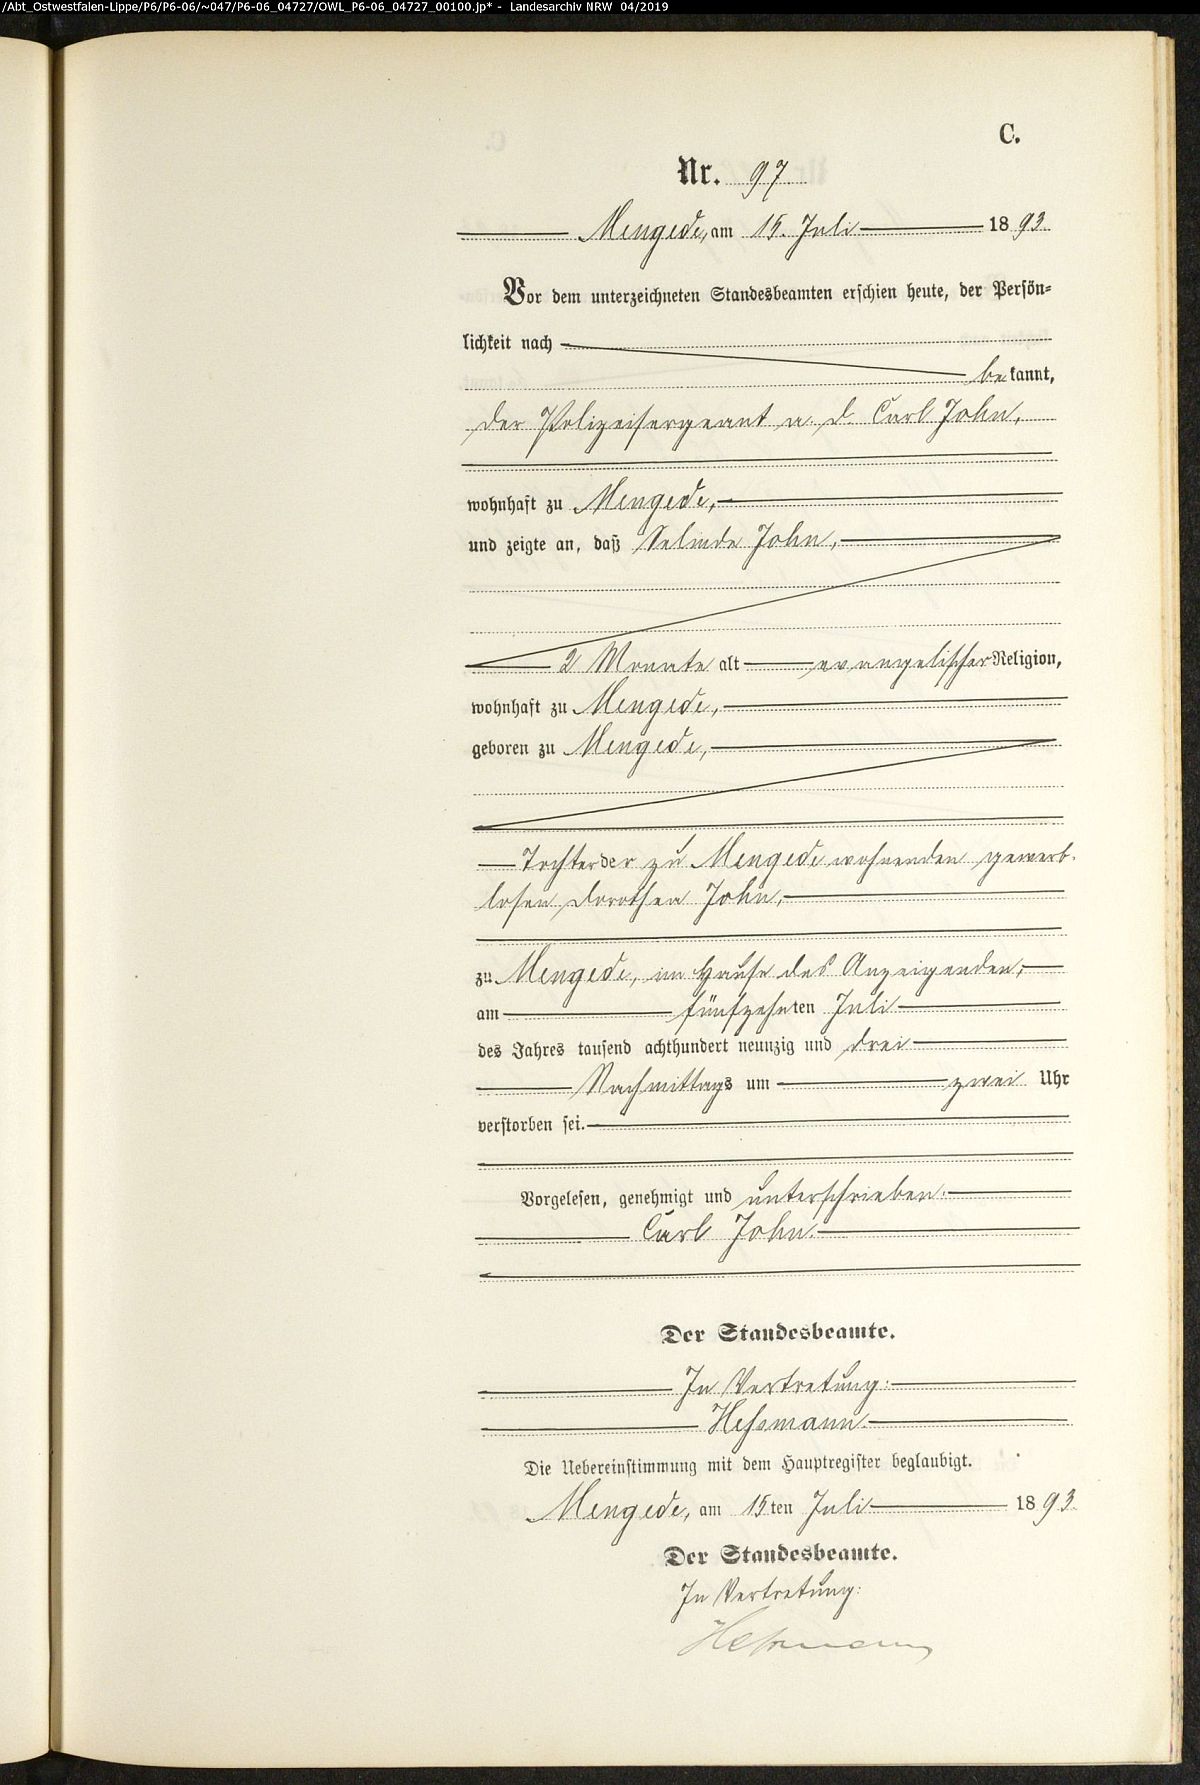 /Abt_Ostwestfalen-Lippe/P6/P6-06/~047/P6-06_04727/OWL_P6-06_04727_00100.jp* - Landesarchiv NRW 04/2019
C.
Nr. 97
Mengede, am 15. Juli 1893.
Vor dem unterzeichneten Standesbeamten erschien heute, der Persön-
lichkeit nach
bekannt,
der Polizeisergeant a. D. Carl John,
wohnhaft zu Mengede,
und zeigte an, daß Selinde John,
2 Monate alt evangelischer Religion,
wohnhaft zu Mengede,
geboren zu Mengede,
Tochter der zu Mengede wohnenden gewerb-
losen Dorothea John,
zu Mengede, im Hause des Anzeigenden,
am fünfzehnten Juli
des Jahres tausend achthundert neunzig und drei
Nachmittags um zwei Uhr
verstorben sei.
Vorgelesen, genehmigt und unterschrieben.
Carl John.
Der Standesbeamte.
In Vertretung:
Heßmann.
Die Uebereinstimmung mit dem Hauptregister beglaubigt.
Mengede, am 15ten Juli 1893.
Der Standesbeamte.
In Vertretung:
Heßmann